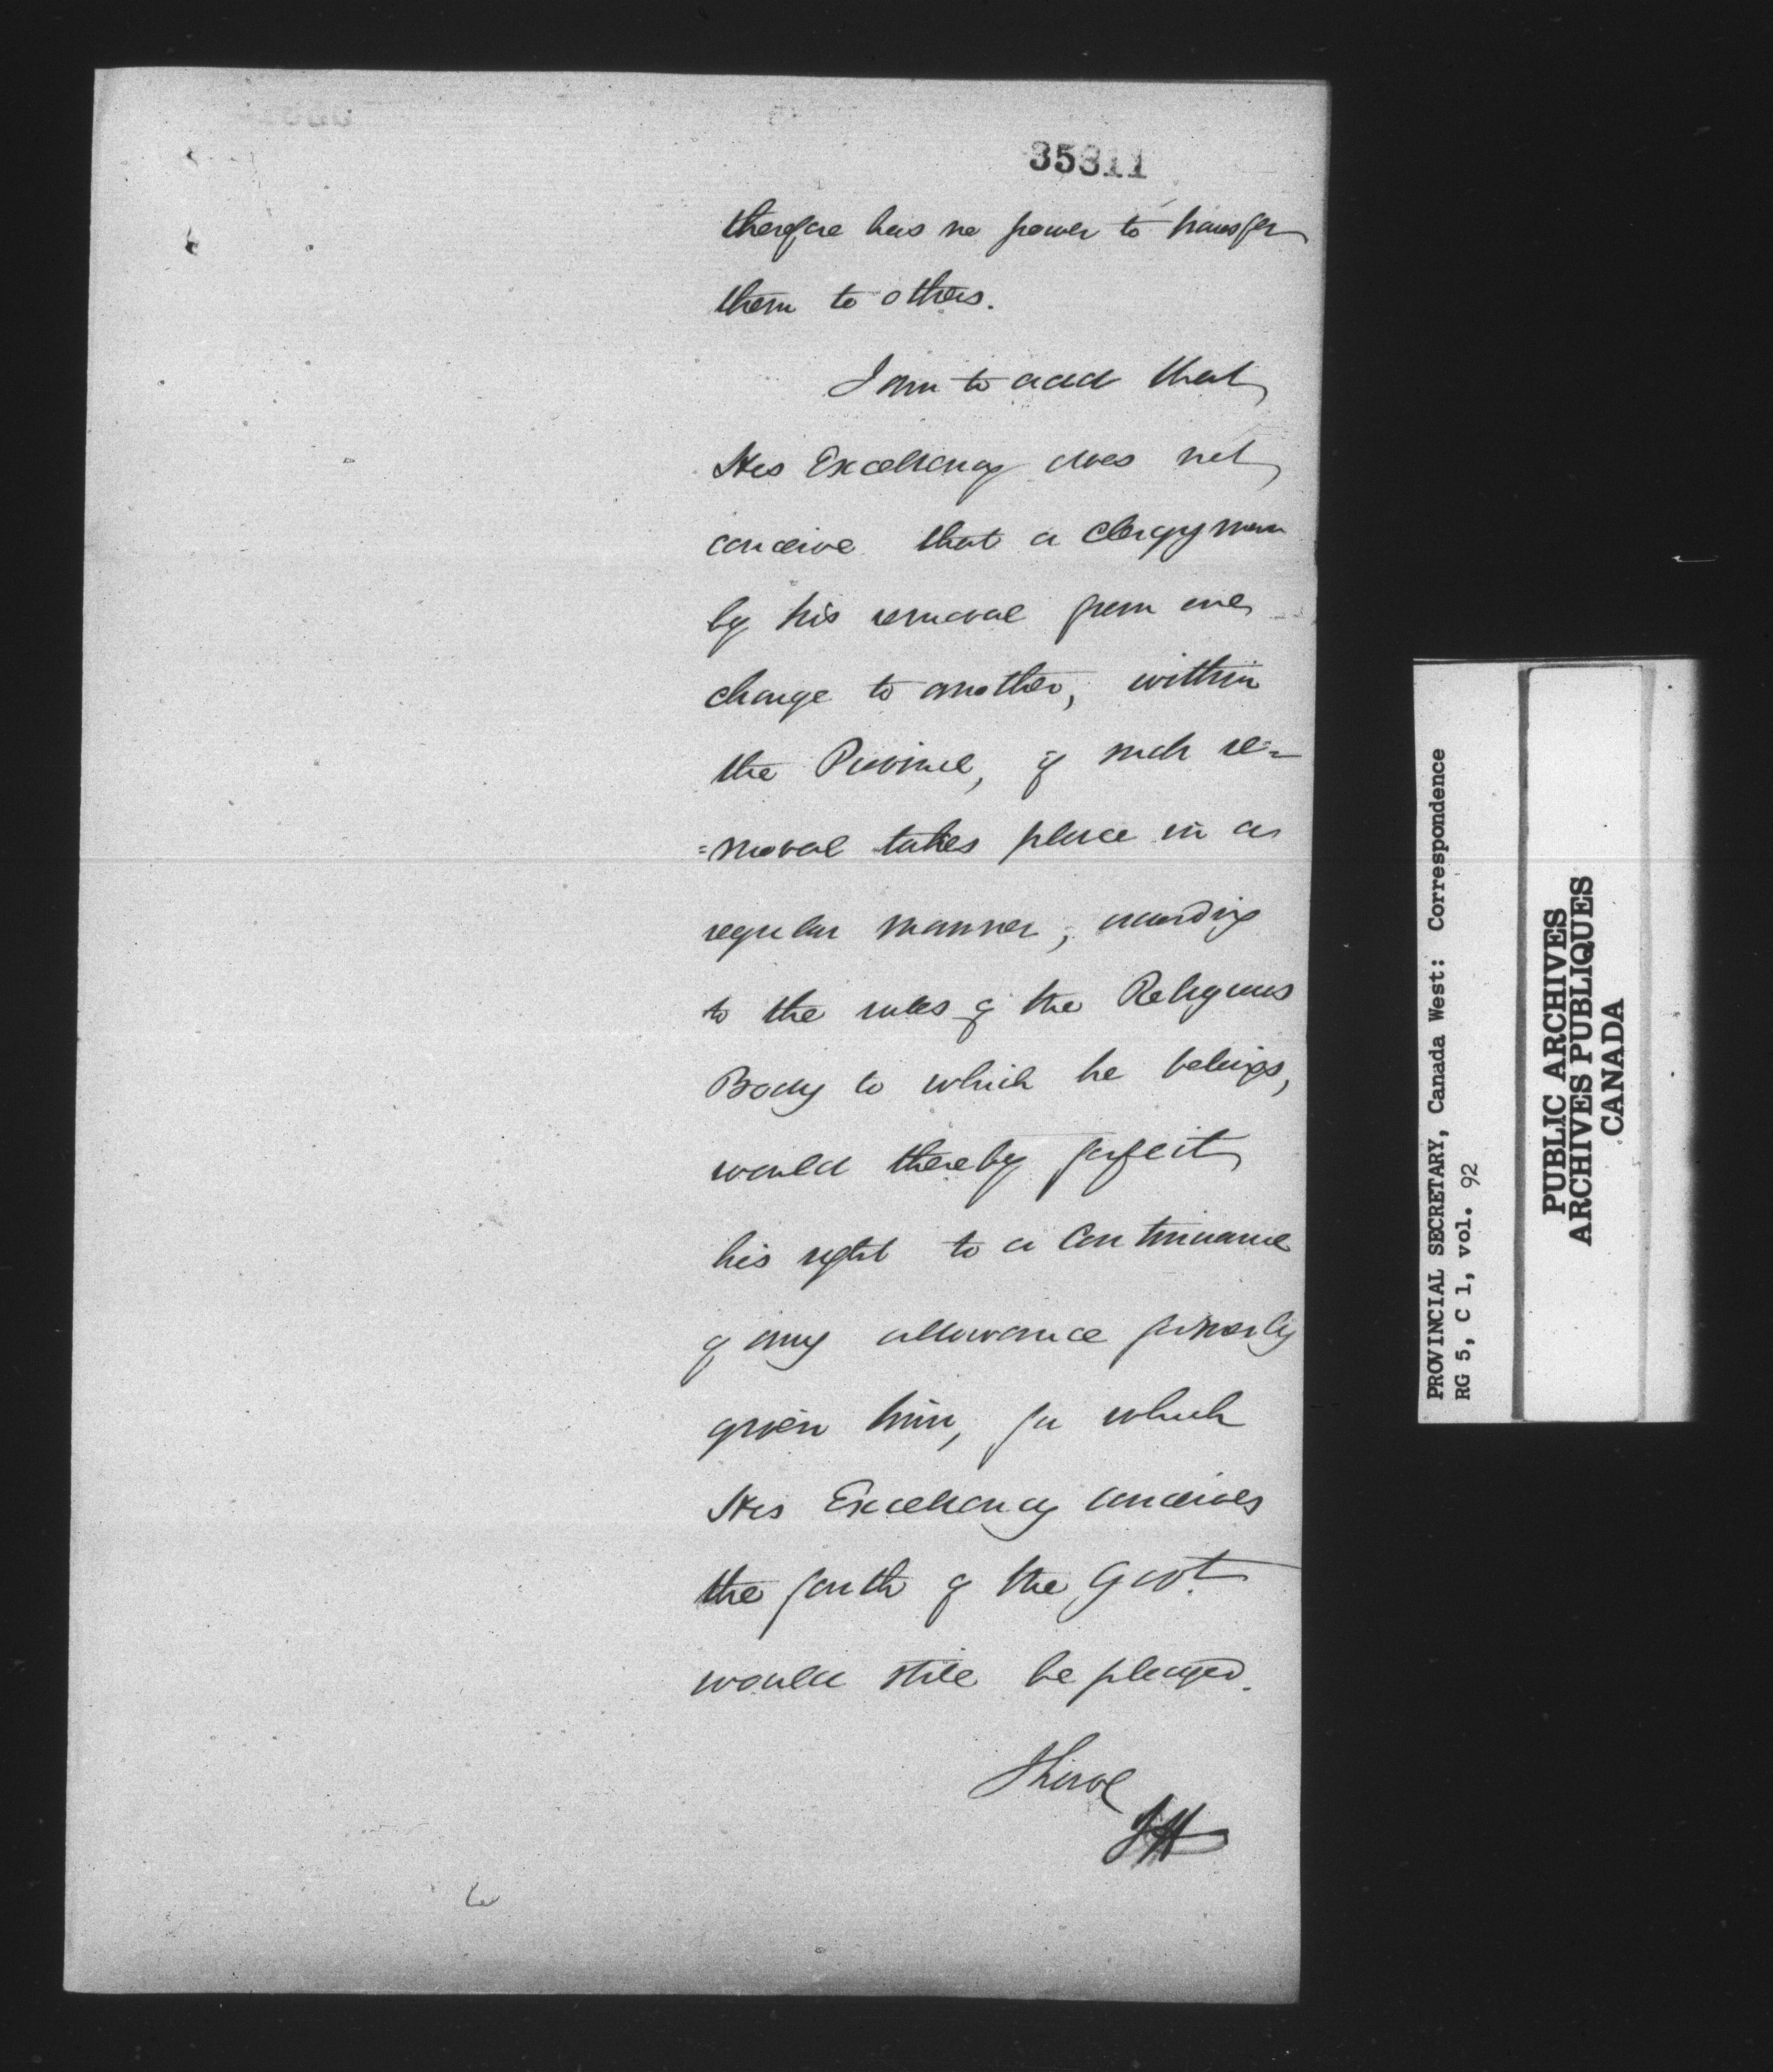 35311
therefore has no power to transfer
them to others.
I am to add that
His Excellency does not
conceive that a Clergyman
by his removal from one
charge to another, within
the Province, if such re=
=moval takes place in a
regular manner, according
to the rules of the Religious
Body to which he belongs,
would thereby forfeit
his right to a Continuance
of any allowance formerly
given him, for which
His Excellency conceives
the faith of the Govt.
would still be pledged.
PROVINCIAL SECRETARY, Canada West: Correspondence
RG 5, C 1, vol. 92
PUBLIC ARCHIVES
ARCHIVES PUBLIQUES
CANADA